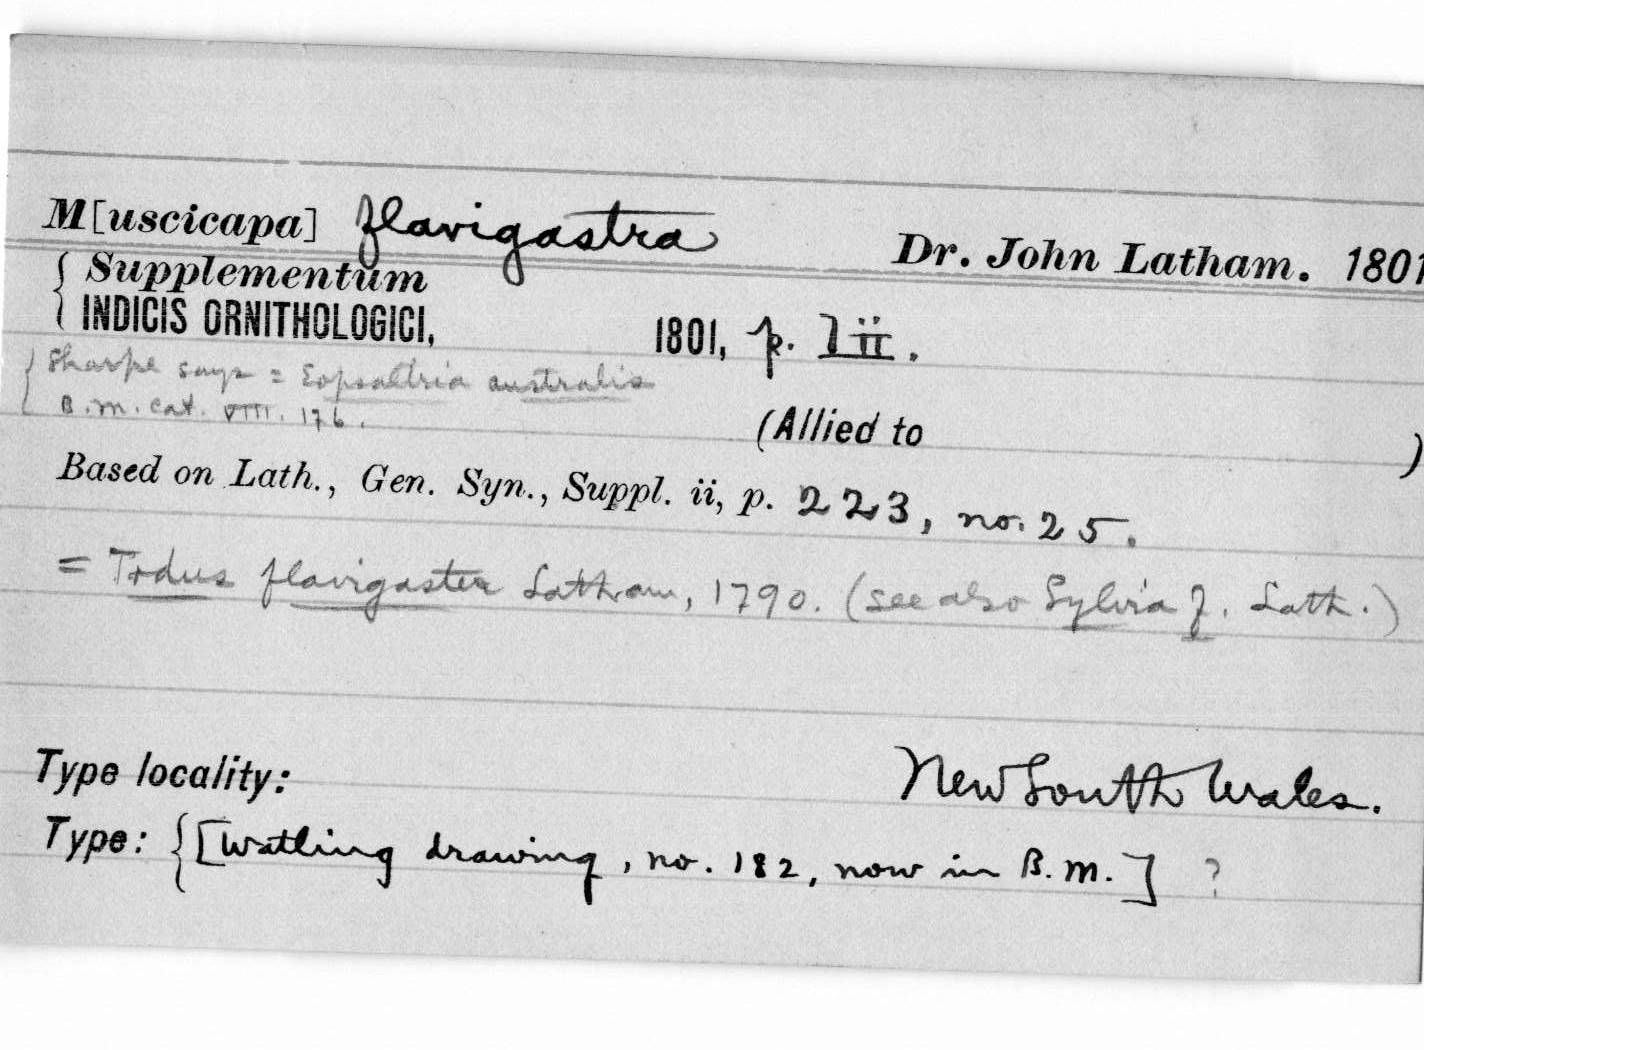 M[uscicapa] flavigastra Dr. John Latham. 1801
{ Supplementum
{ INDICIS ORNITHOLOGICI, 1801, p. lii.
{ Sharpe says = Eopsaltria australis
B.M. Cat. VIII. 176.
(Allied to )
Based on Lath., Gen. Syn., Suppl. ii, p. 223, no. 25.
= Todus flavigaster Latham, 1790. (see also Sylvia f. Lath.)
Type locality: New South Wales.
Type: {[Watling drawing, no. 182, now in B.M.] ?